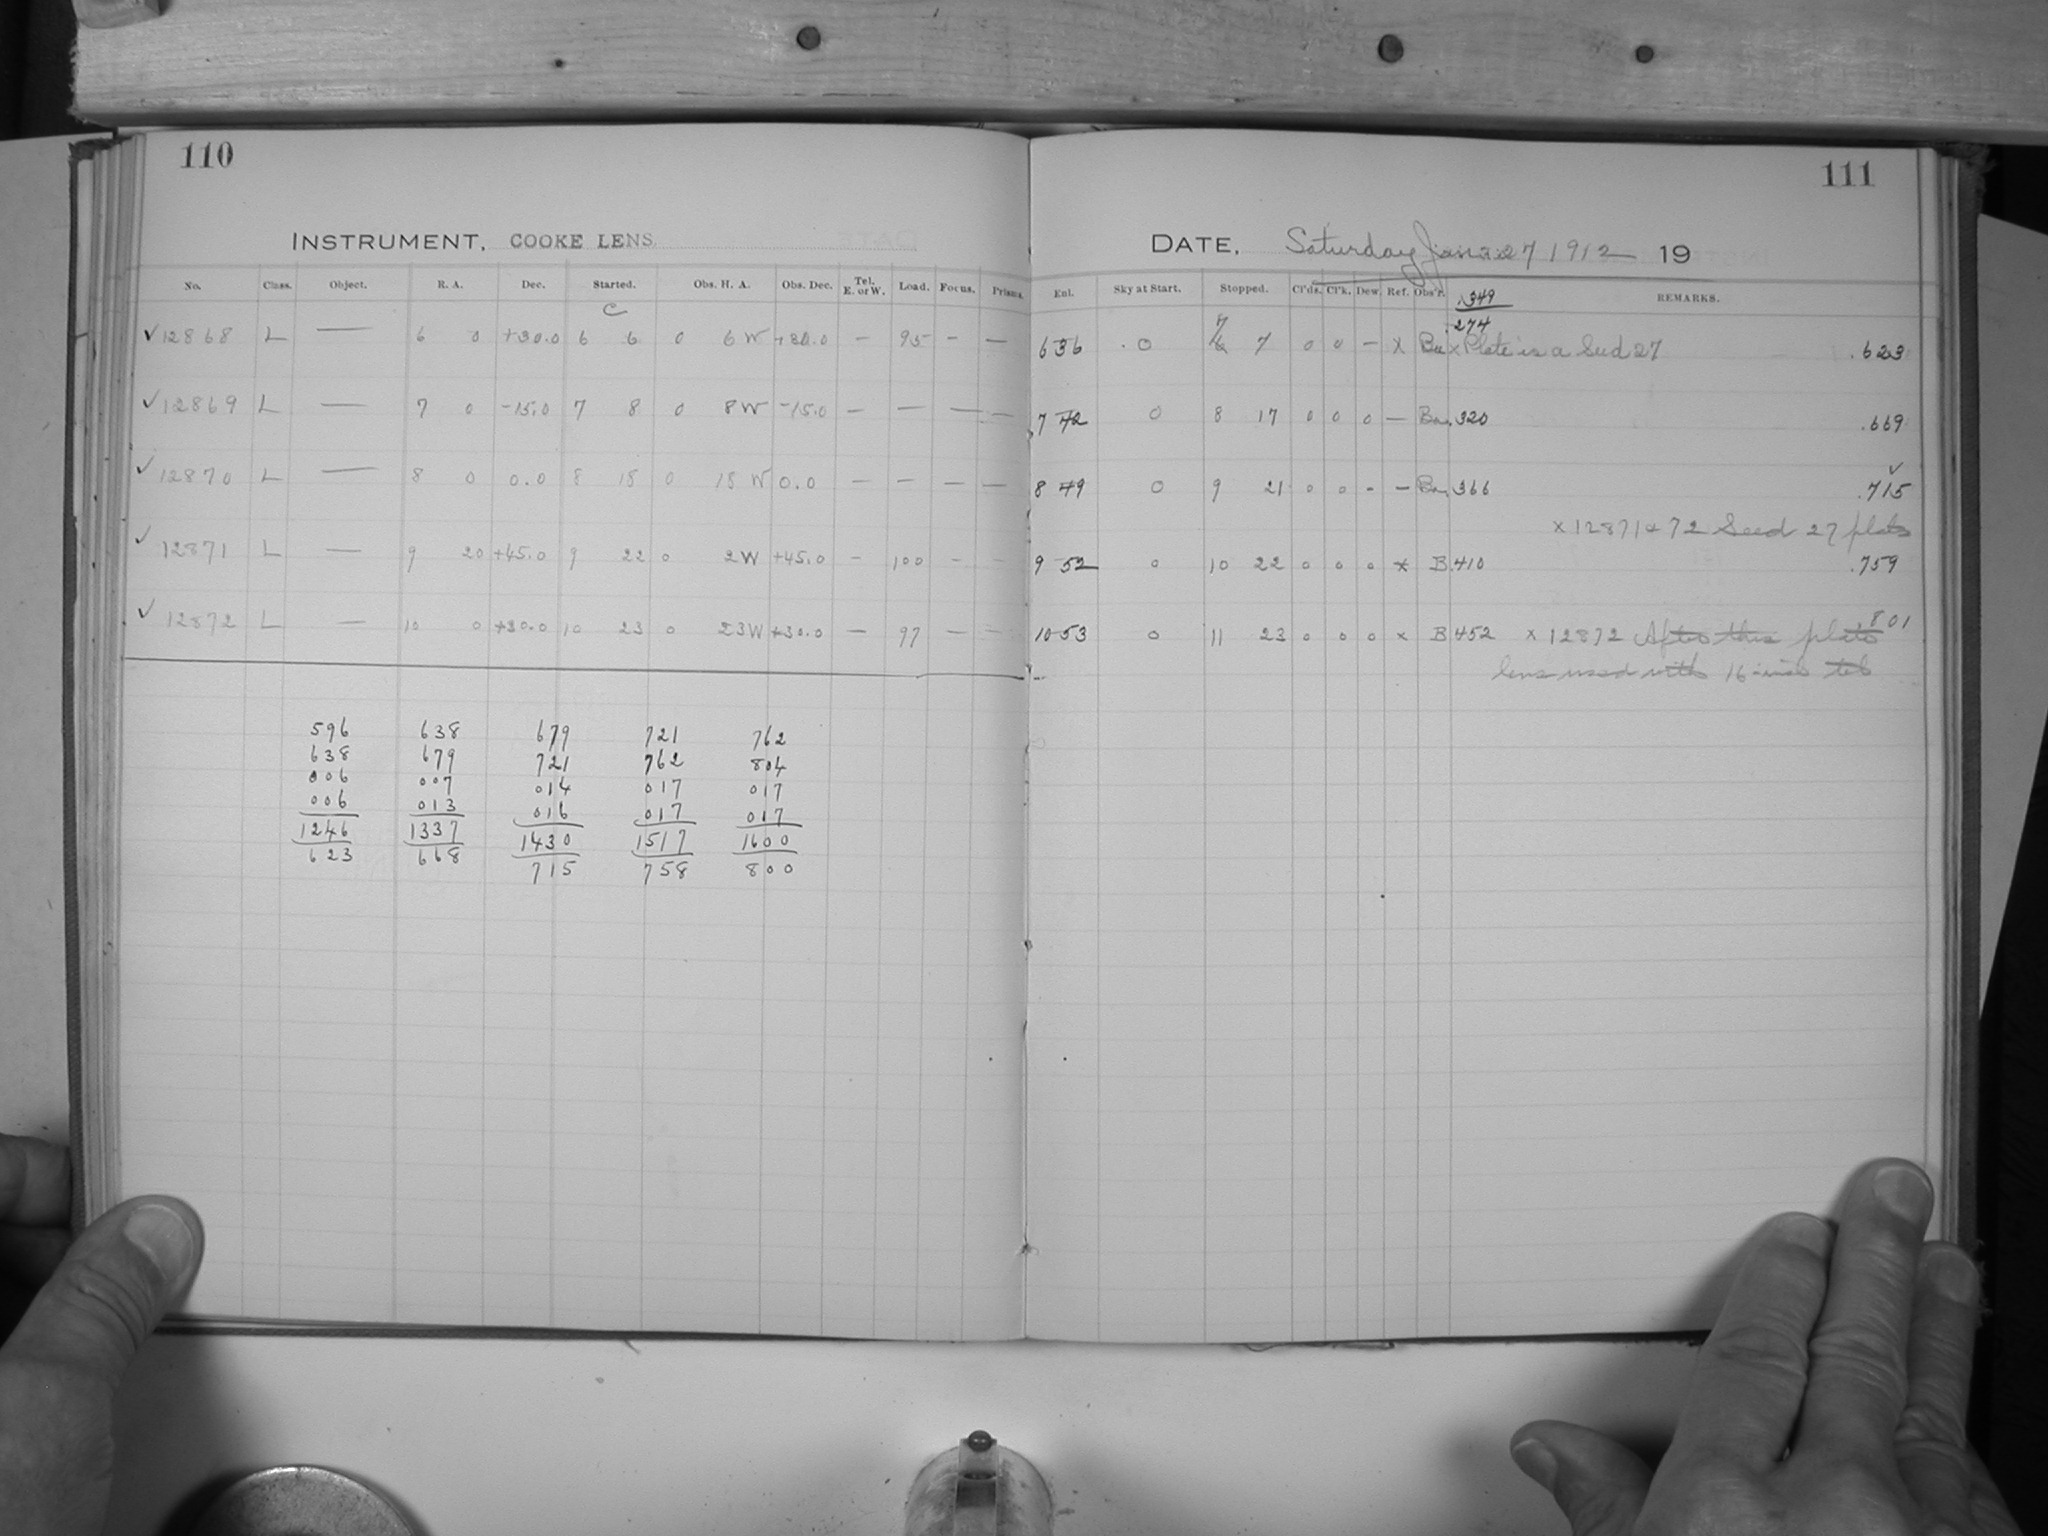 110
INSTRUMENT, COOKE LENS
No. Class. Object. R. A. Dec. Started. Obs. H. A. Obs. Dec. Tel. E. or W. Load. Focus. Prisms.
C
✓ 12868 L — 6 0 +30.0 6 6 0 6 W +30.0 — 95 — —
✓ 12869 L — 7 0 -15.0 7 8 0 8 W -15.0 — — — —
✓ 12870 L — 8 0 0.0 8 15 0 15 W 0.0 — — — —
✓ 12871 L — 9 20 +45.0 9 22 0 2 W +45.0 — 100 — —
✓ 12872 L — 10 0 +30.0 10 23 0 23 W +30.0 — 97 — —
596 638 679 721 762
638 679 721 762 804
006 007 014 017 017
006 013 016 017 017
1246 1337 1430 1517 1600
623 668 715 758 800
111
DATE, Saturday Jan. 27 1912 19
Enl. Sky at Start. Stopped. Cl'ds. Cl'k. Dew. Ref. Obs'r. REMARKS.
.349
.274
6 36 0 7 7 0 0 — x x Plate is a Seed 27 .623
7 42 0 8 17 0 0 0 — .320 .669
8 49 0 9 21 0 0 - — .366 .715
x 12871 & 72 Seed 27 plates
9 52 0 10 22 0 0 0 x B .410 .759
10 53 0 11 23 0 0 0 x B .452 x 12872 After this plate .801
lens used with 16-inch tel